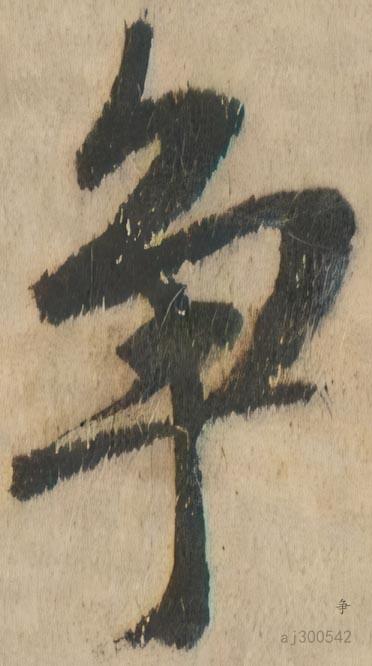 争
争
aj300542